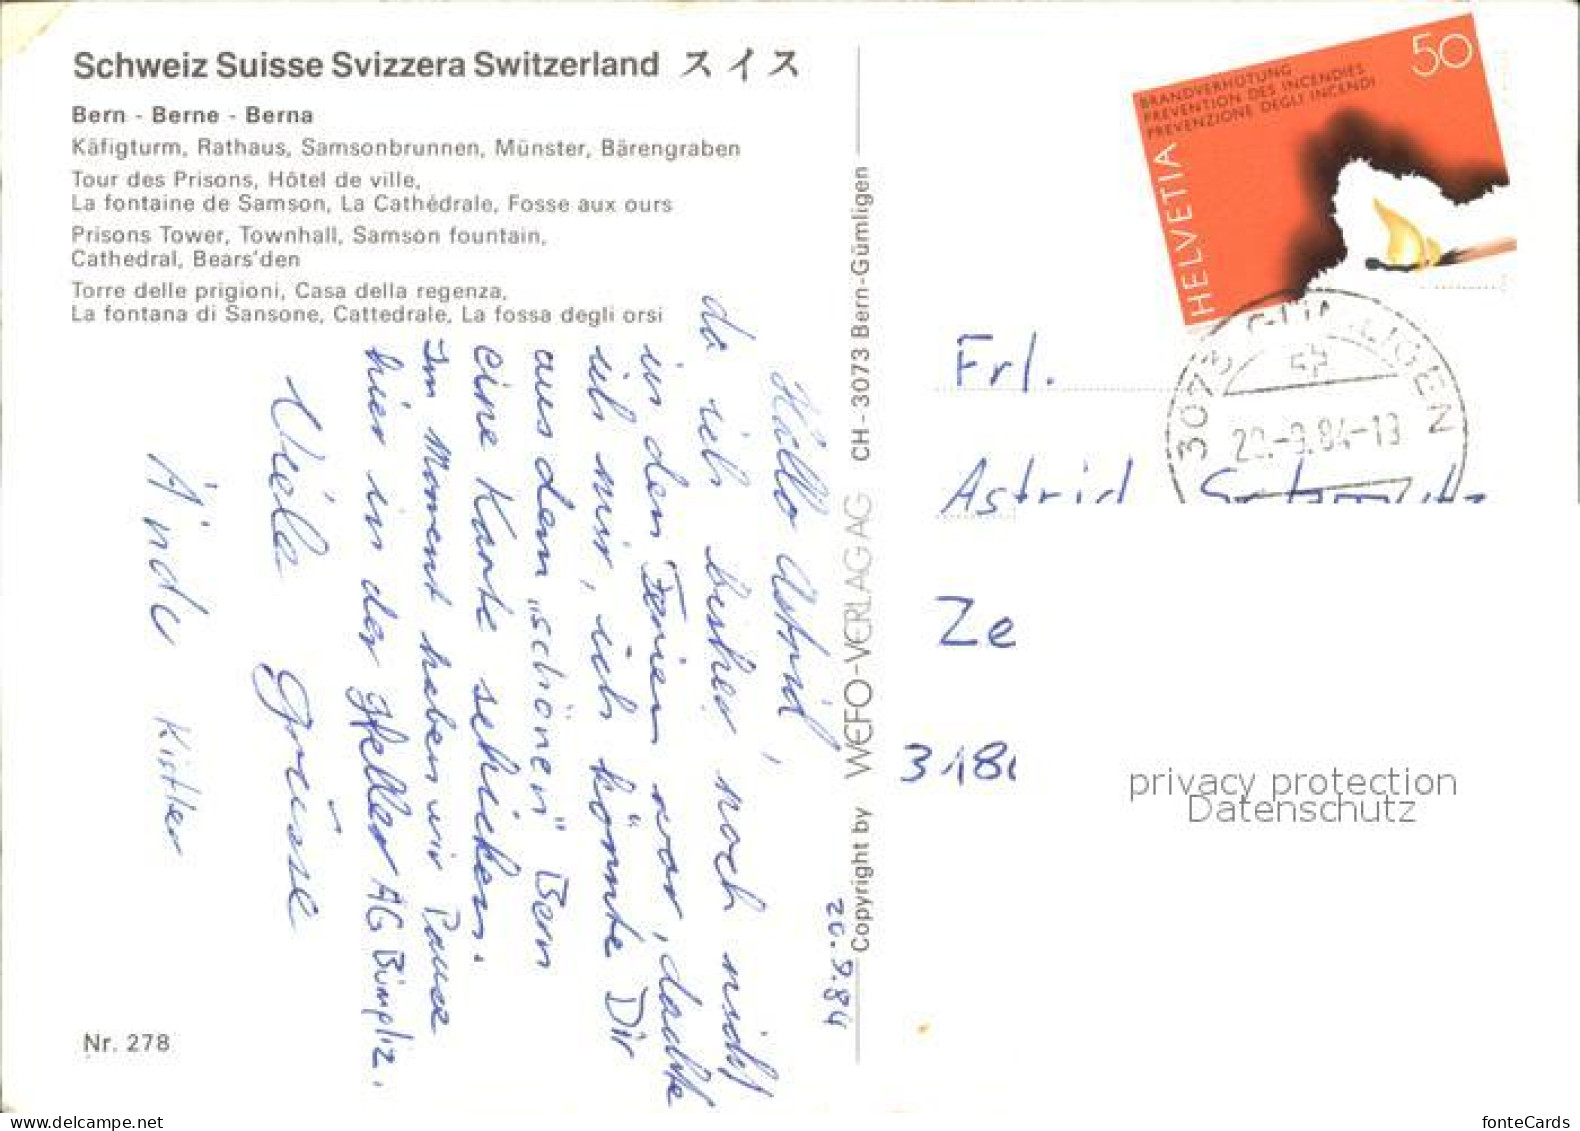 Schweiz Suisse Svizzera Switzerland スイス
Bern - Berne - Berna
Käfigturm, Rathaus, Samsonbrunnen, Münster, Bärengraben
Tour des Prisons, Hôtel de ville,
La fontaine de Samson, La Cathédrale, Fosse aux ours
Prisons Tower, Townhall, Samson fountain,
Cathedral, Bears'den
Torre delle prigioni, Casa della regenza,
La fontana di Sansone, Cattedrale, La fossa degli orsi
20.9.84
Hallo Astrid,
da ich bisher noch nicht
in den Ferien war, dachte
ich mir, ich könnte Dir
aus dem „schönen" Bern
eine Karte schicken.
Im Moment haben wir Pause
hier in der Gfeller AG Bümpliz.
Viele Grüsse
Ändu Kistler
Nr. 278
Copyright by WEFO-VERLAG AG CH-3073 Bern-Gümligen
HELVETIA
50
BRANDVERHÜTUNG
PREVENTION DES INCENDIES
PREVENZIONE DEGLI INCENDI
3073 GÜMLIGEN
20.-9.84-18
Frl.
Astrid
Ze
318
privacy protection
Datenschutz
fonteCards